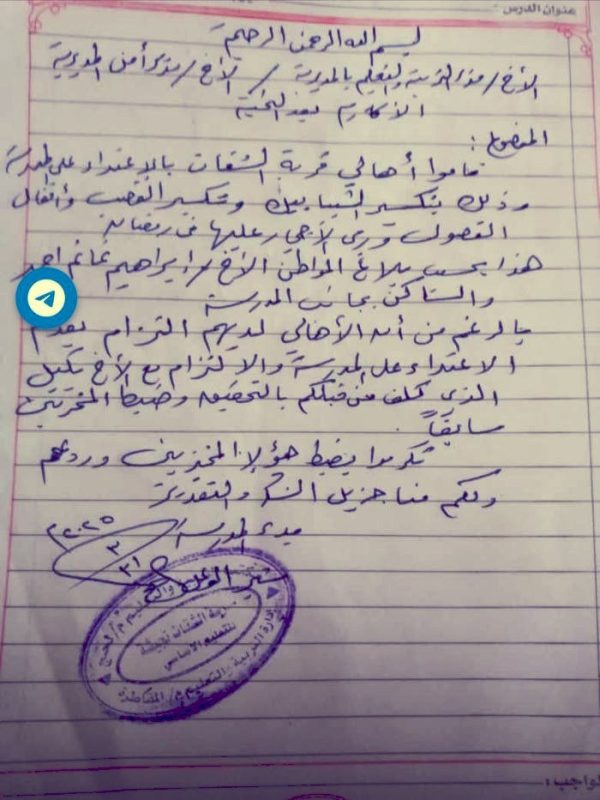 عنوان الدرس :
بسم الله الرحمن الرحيم
الأخ / مدير التربية والتعليم بالمديرية / الأخ / مدير أمن المديرية
الأكارم بعد التحية
الموضوع :
قاموا أهالي قرية الشقات بالاعتداء على المدرسة
وذلك بتكسير الشبابيك وتكسير القصب وأقفال
الفصول ورمي الأحجار عليها في رمضان
هذا بحسب بلاغ المواطن الأخ / إبراهيم غانم أحمد
والساكن بجانب المدرسة
بالرغم من أن الأهالي لديهم التزام بعدم
الاعتداء على المدرسة والالتزام مع الأخ
الذي كلف من قبلكم بالتحقيق وضبط المخربين
سابقاً .
تكرموا بضبط هؤلاء المخربين وردعهم
ولكم منا جزيل الشكر والتقدير
مدير المدرسة
٢٠٢٥
٣
٣١
للتعليم الأساسي
إدارة التربية والتعليم م/ المقاطرة
الواجب :